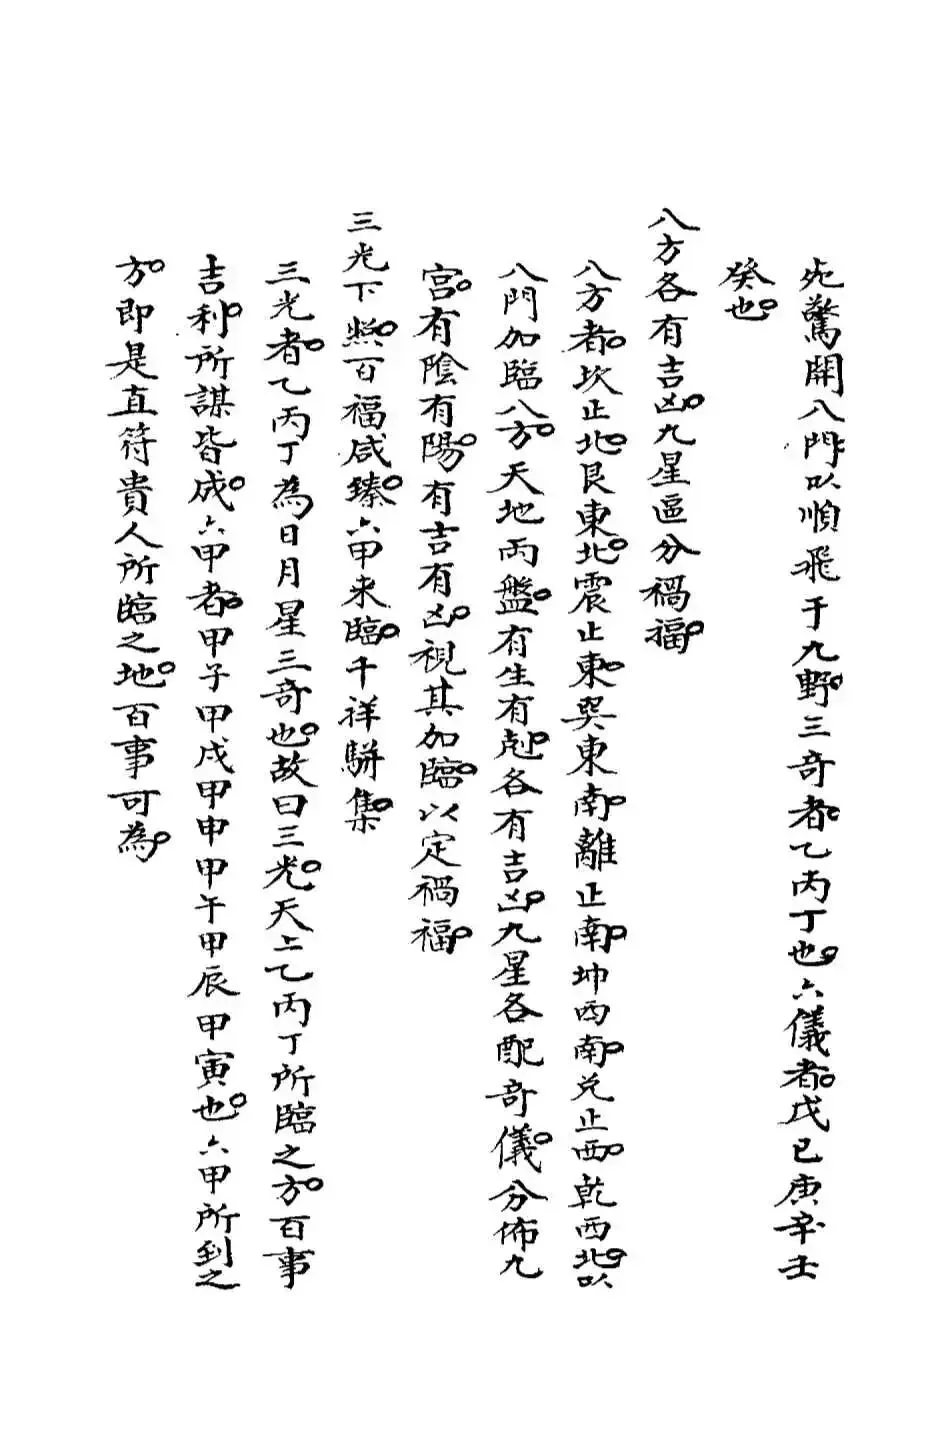 死驚開八門以順飛于九野。三奇者。乙丙丁也。六儀者。戊己庚辛壬
癸也。
八方各有吉凶。九星區分禍福。
八方者。坎正北。艮東北。震正東。巽東南。離正南。坤西南。兌正西。乾西北。以
八門加臨八方。天地兩盤。有生有剋。各有吉凶。九星各配奇儀。分佈九
宮。有陰有陽。有吉有凶。視其加臨。以定禍福。
三光下照。百福咸臻。六甲来臨。千祥駢集。
三光者。乙丙丁為日月星三奇也。故曰三光。天上乙丙丁所臨之方。百事
吉利。所謀皆成。六甲者。甲子甲戌甲申甲午甲辰甲寅也。六甲所到之
方。即是直符貴人所臨之地。百事可為。